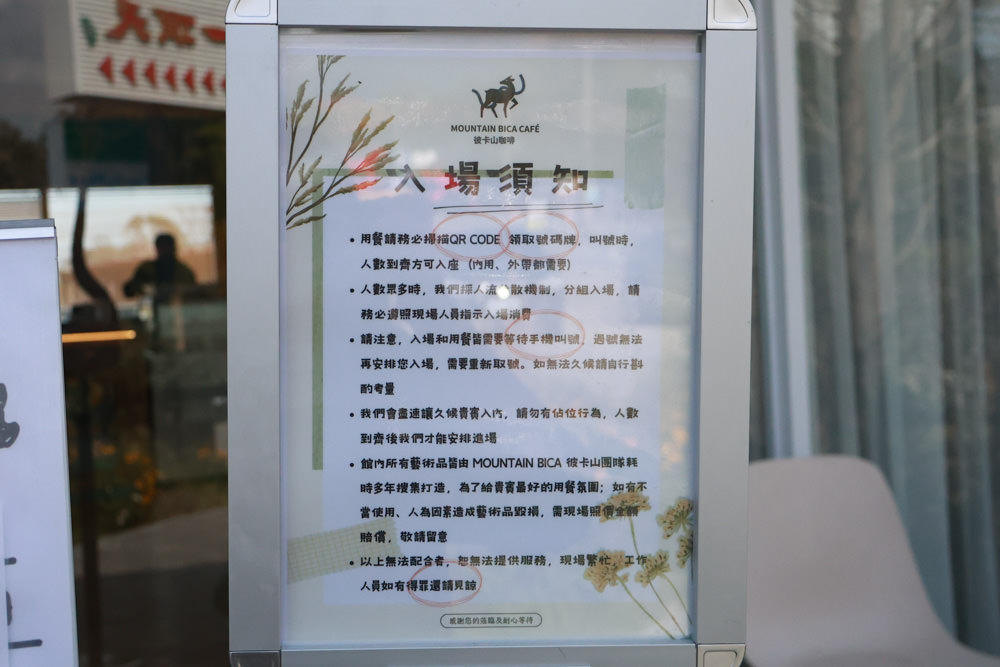 MOUNTAIN BICA CAFÉ
彼卡山咖啡
入場須知
• 用餐請務必掃描QR CODE 領取號碼牌，叫號時，
人數到齊方可入座（內用、外帶都需要）
• 人數眾多時，我們採人流分散機制，分組入場，請
務必遵照現場人員指示入場消費
• 請注意，入場和用餐皆需要等待手機叫號，過號無法
再安排您入場，需要重新取號。如無法久候請自行斟
酌考量
• 我們會盡速讓久候貴賓入內，請勿有佔位行為，人數
到齊後我們才能安排進場
• 館內所有藝術品皆由 MOUNTAIN BICA 彼卡山團隊耗
時多年搜集打造，為了給貴賓最好的用餐氛圍；如有不
當使用、人為因素造成藝術品毀損，需現場照價全額
賠償，敬請留意
• 以上無法配合者，恕無法提供服務，現場繁忙，工作
人員如有得罪還請見諒
感謝您的蒞臨及耐心等待